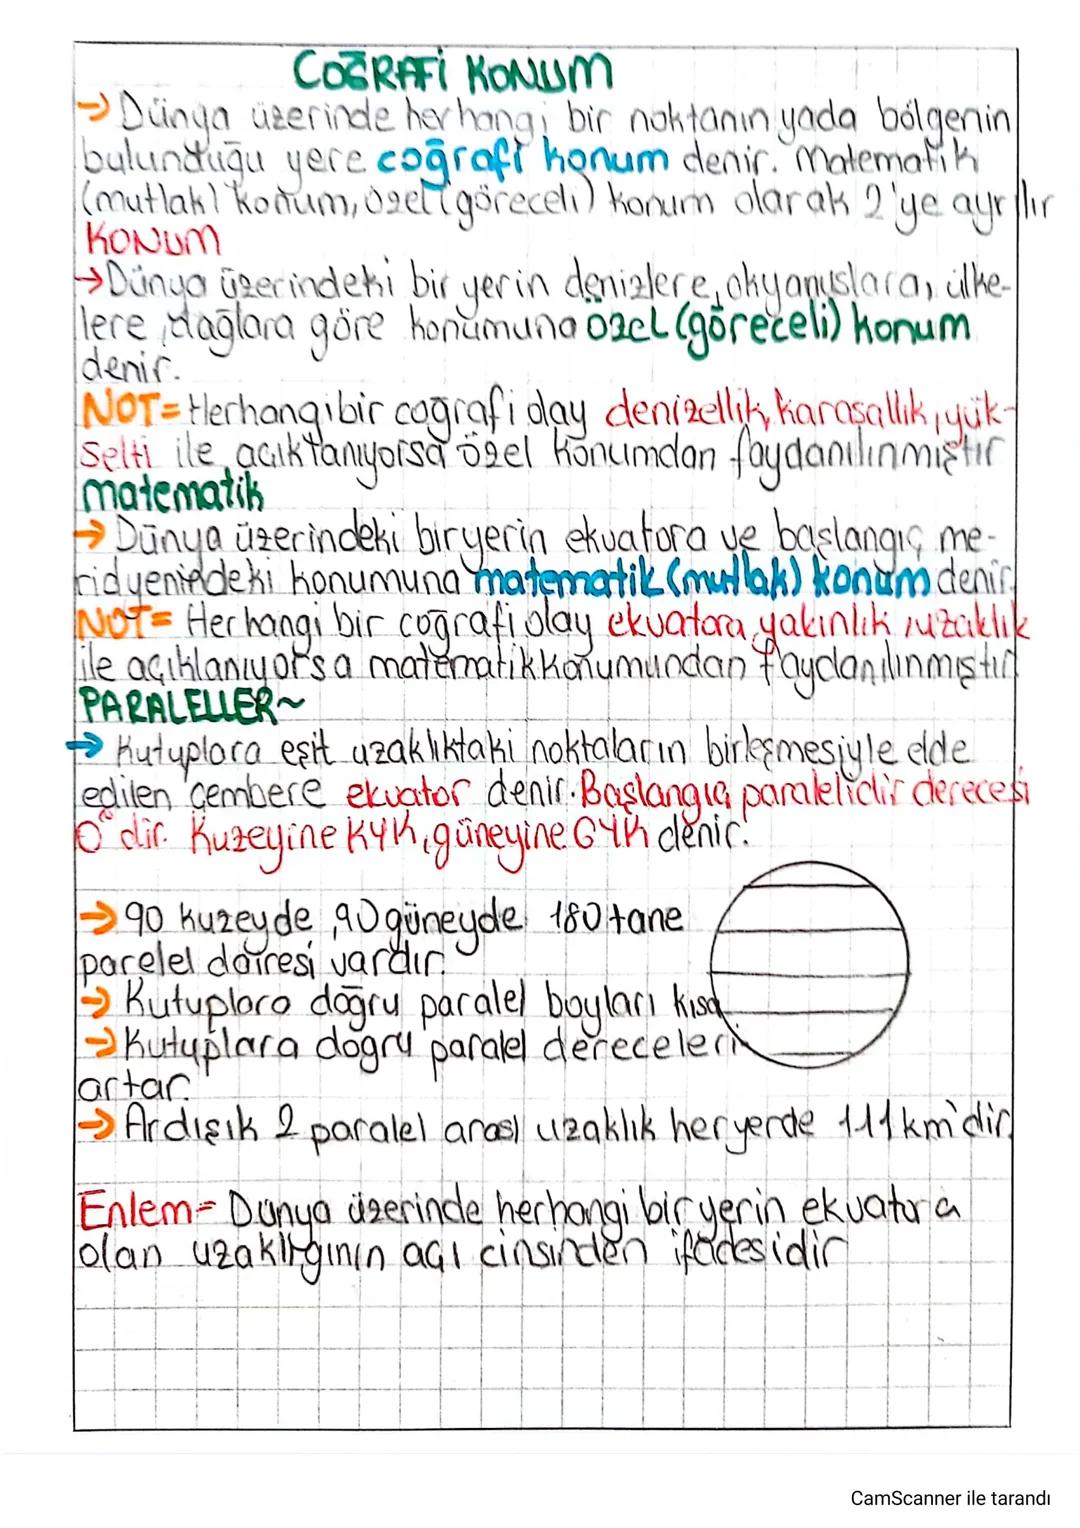 COĞRAFİ KONUM
→ Dünya üzerinde herhangi bir noktanın yada bölgenin
bulunduğu yere coğrafi konum denir. Matematik
(mutlak) konum, özel (göreceli) konum olarak 2'ye ayrılır
KONUM
→ Dünya üzerindeki bir yerin denizlere, okyanuslara, ülke-
lere, dağlara göre konumuna özeL (göreceli) konum
denir.
NOT= Herhangi bir coğrafi olay denizellik, karasallık, yük-
selti ile açıklanıyorsa özel konumdan faydanılınmıştır
matematik
→ Dünya üzerindeki bir yerin ekvatora ve başlangıç me-
ridyenindeki konumuna matematik (mutlak) konum denir.
NOT= Herhangi bir coğrafi olay ekvatora yakınlık, uzaklık
ile açıklanıyorsa matematik konumundan faydanılınmıştır
PARALELLER~
→ Kutuplara eşit uzaklıktaki noktaların birleşmesiyle elde
edilen çembere ekvator denir. Başlangıç paralelidir derecesi
0° dir. Kuzeyine KYK, güneyine GYK denir.
→ 90 kuzeyde, 90 güneyde 180 tane
parelel dairesi vardır.
→ Kutuplara doğru paralel boyları kısa
→ Kutuplara doğru paralel dereceleri
artar.
→ Ardışık 2 paralel arası uzaklık heryerde 111 km'dir.
Enlem= Dünya üzerinde herhangi bir yerin ekvatora
olan uzaklığının açı cinsinden ifadesidir
CamScanner ile tarandı